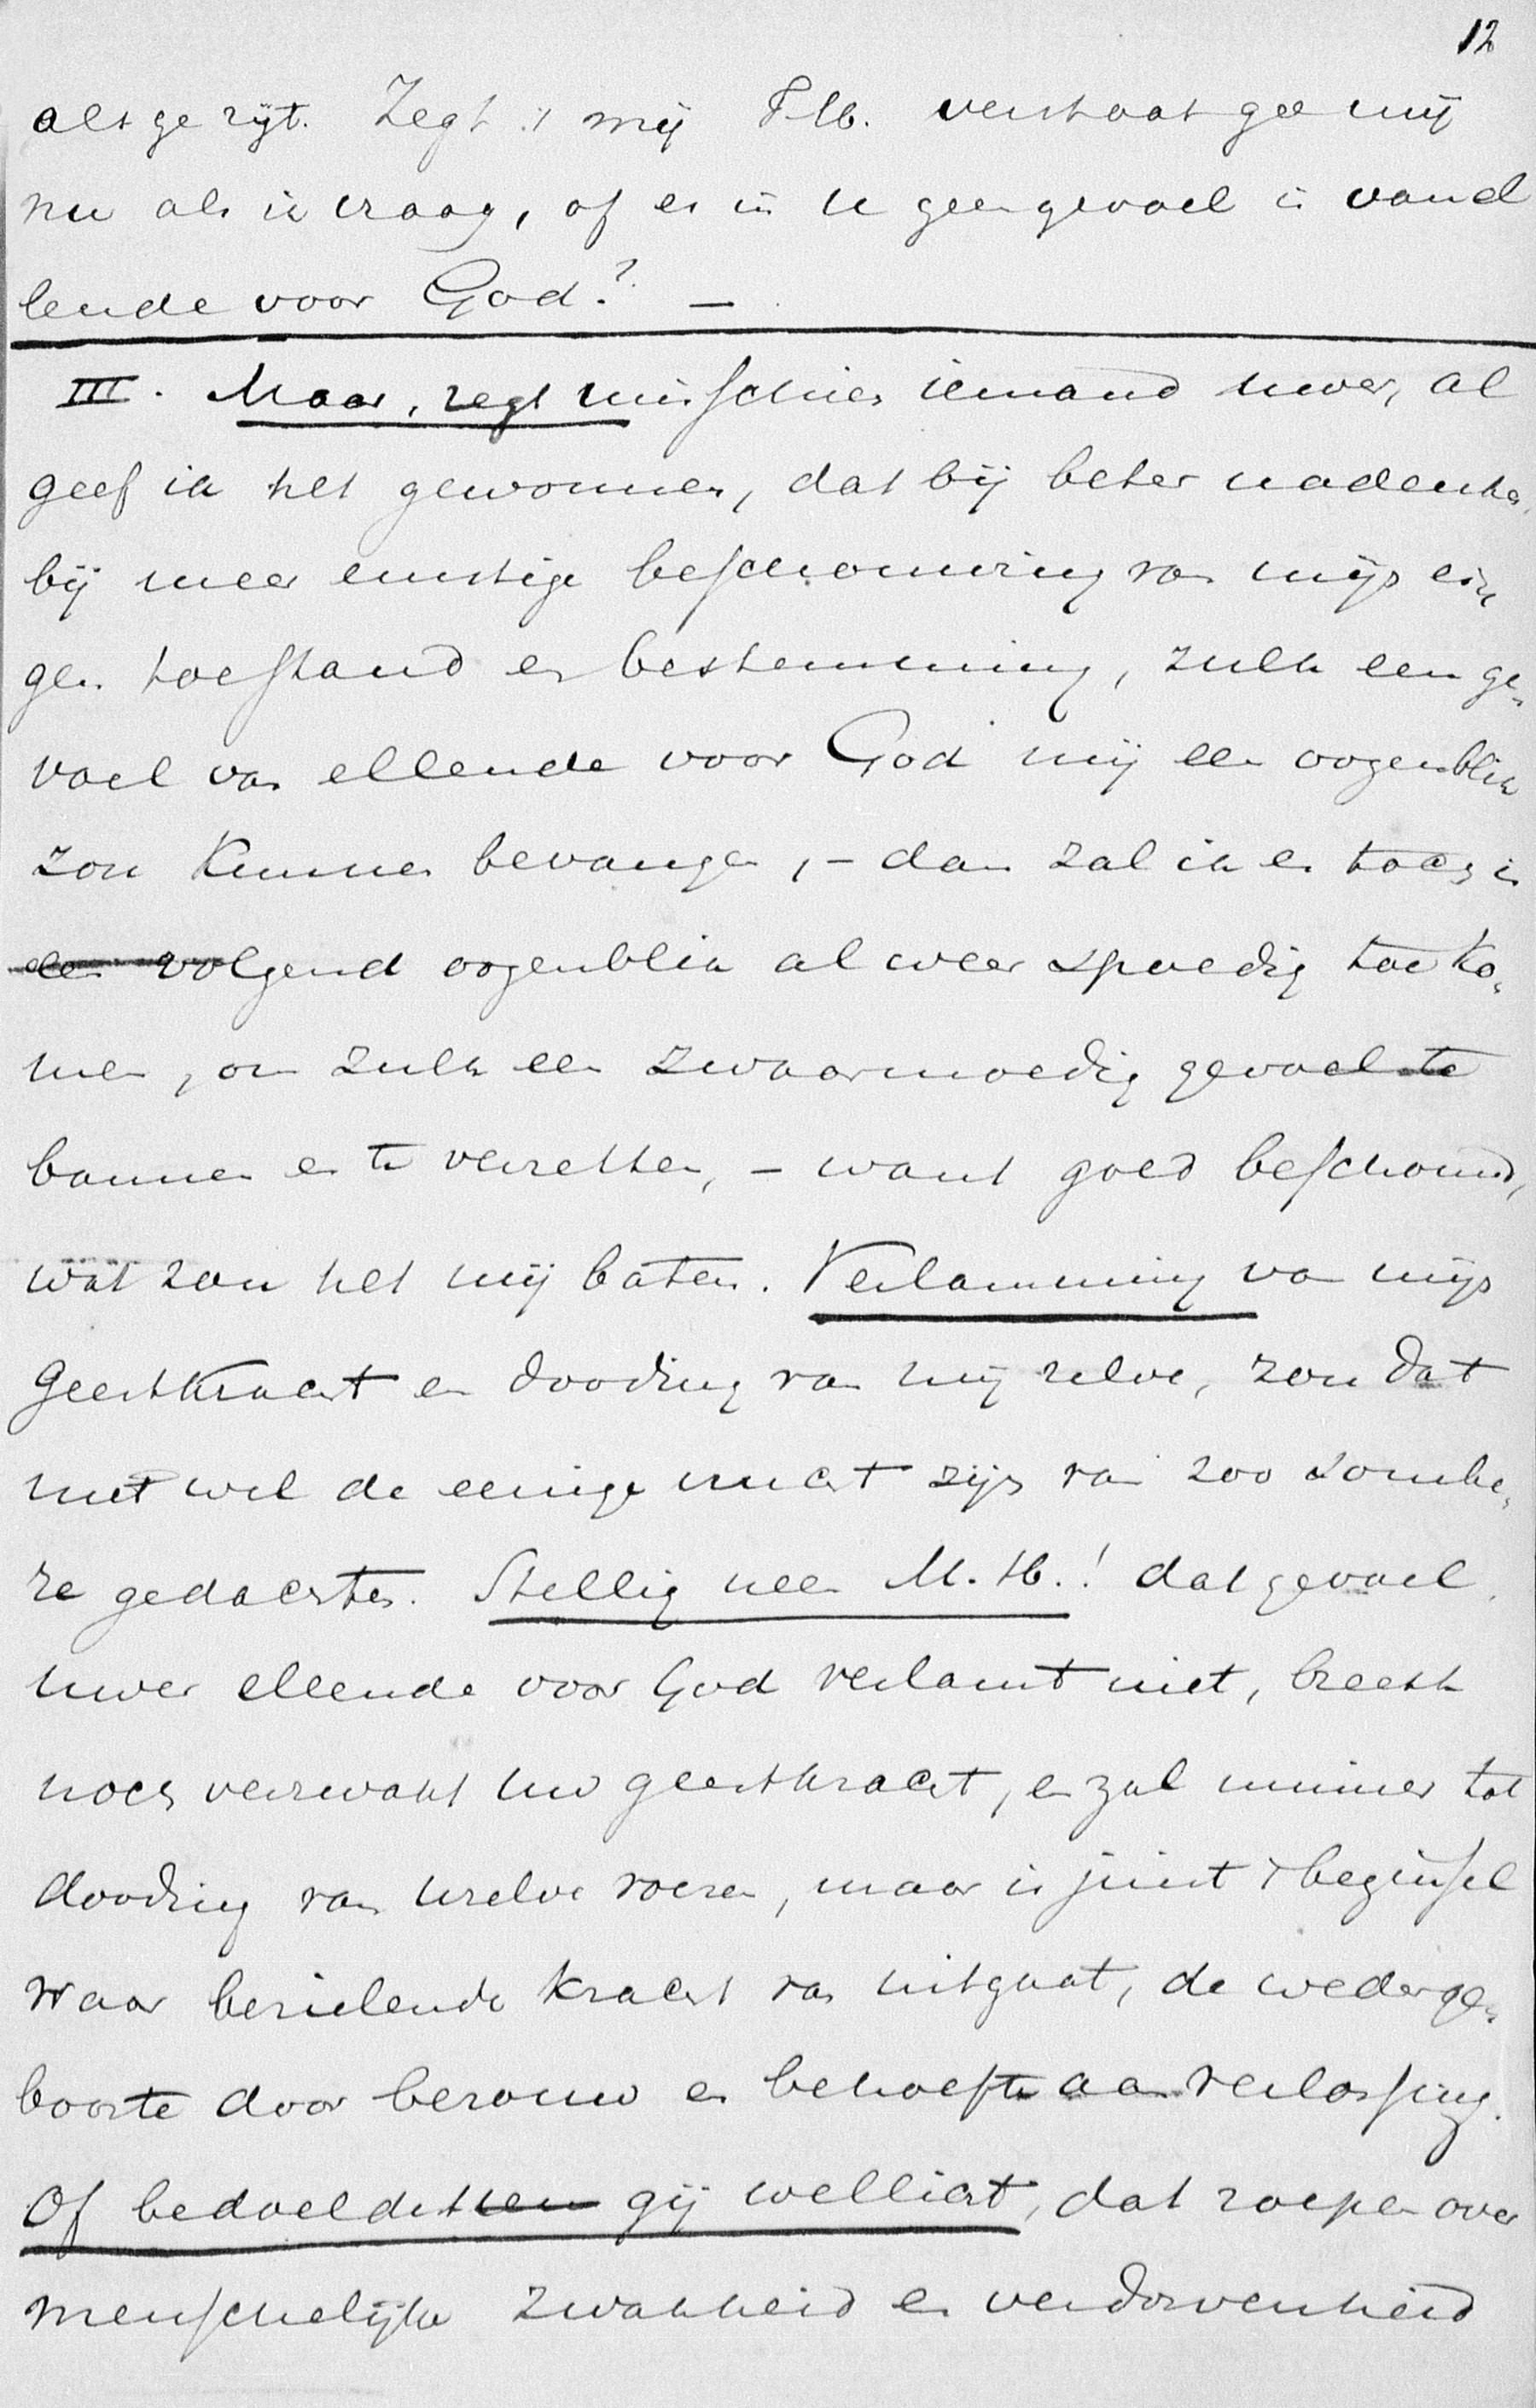 12
als ge zijt. Zegt 't mij T. H. verstaat ge mij
nu als ik vraag, of er in U geen gevoel is van el
lende voor God? –
III. Maar, zegt misschien iemand uwer, al
geef ik het gewonnen, dat bij beter nadenken,
bij meer ernstige beschouwing van mijn ei„
gen toestand en bestemming, zulk een ge„
voel van ellende voor God mij een oogenblik
zou kunnen bevangen, – dan zal ik er toch in
een volgend oogenblik al weer spoedig toe ko„
men, om zulk een zwaarmoedig gevoel te
bannen en te verzetten, – want goed beschouwd,
wat zou het mij baten. Verlamming van mijn
geestkracht en dooding van mij zelve, zou dat
niet wel de eenige vrucht zijn van zoo sombe„
re gedachten. Stellig neen M. H.! dat gevoel
uwer ellende voor God verlamt niet, breekt
noch verzwakt uw geestkracht, en zal nimmer tot
dooding van uzelve voeren, maar is juist 't beginsel
waar bezielende kracht van uitgaat, de wederge„
boorte door berouw en behoefte aan verlossing.
Of bedoeldet gij wellicht, dat roepen over
menschelijke zwakheid en verdorvenheid